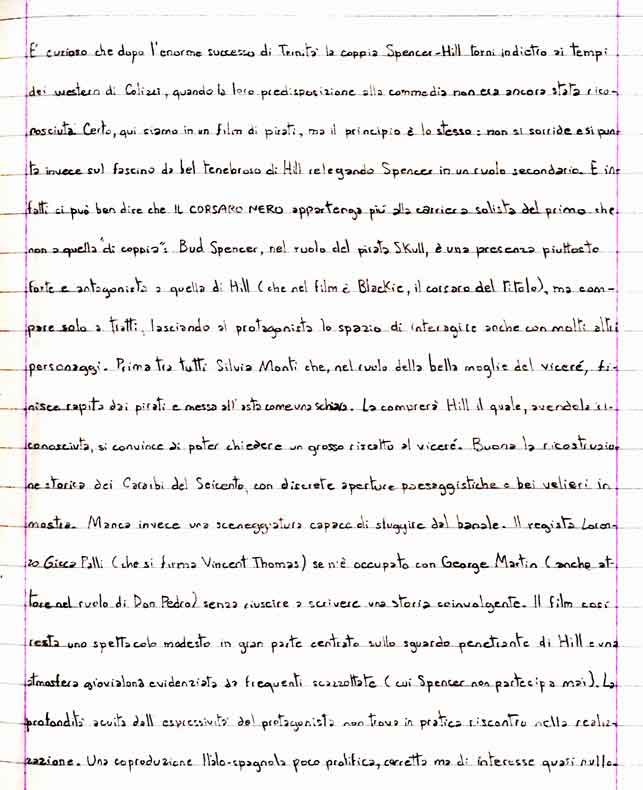 E' curioso che dopo l'enorme successo di Trinità la coppia Spencer-Hill torni indietro ai tempi
dei western di Colizzi, quando la loro predisposizione alla commedia non era ancora stata rico-
nosciuta. Certo, qui siamo in un film di pirati, ma il principio è lo stesso: non si sorride e si pun
ta invece sul fascino da bel tenebroso di Hill relegando Spencer in un ruolo secondario. E in-
fatti ci può ben dire che IL CORSARO NERO appartenga più alla carriera solista del primo che
non a quella "di coppia": Bud Spencer, nel ruolo del pirata Skull, è una presenza piuttosto
forte e antagonista a quella di Hill (che nel film è Blackie, il corsaro del titolo), ma com-
pare solo a tratti, lasciando al protagonista lo spazio di interagire anche con molti altri
personaggi. Prima tra tutti Silvia Monti che, nel ruolo della bella moglie del viceré, fi-
nisce rapita dai pirati e messa all'asta come una schiava. La comprerà Hill il quale, avendola ri-
conosciuta, si convince di poter chiedere un grosso riscatto al viceré. Buona la ricostruzio-
ne storica dei Caraibi del Seicento, con discrete aperture paesaggistiche e bei velieri in
mostra. Manca invece una sceneggiatura capace di sfuggire dal banale. Il regista Loren-
zo Gicca Palli (che si firma Vincent Thomas) se n'è occupato con George Martin (anche at-
tore nel ruolo di Don Pedro) senza riuscire a scrivere una storia coinvolgente. Il film così
resta uno spettacolo modesto in gran parte centrato sullo sguardo penetrante di Hill e una
atmosfera giovialona evidenziata da frequenti scazzottate (cui Spencer non partecipa mai). La
profondità acuita dall'espressività del protagonista non trova in pratica riscontro nella realiz-
zazione. Una coproduzione Italo-spagnola poco prolifica, corretta ma di interesse quasi nullo.